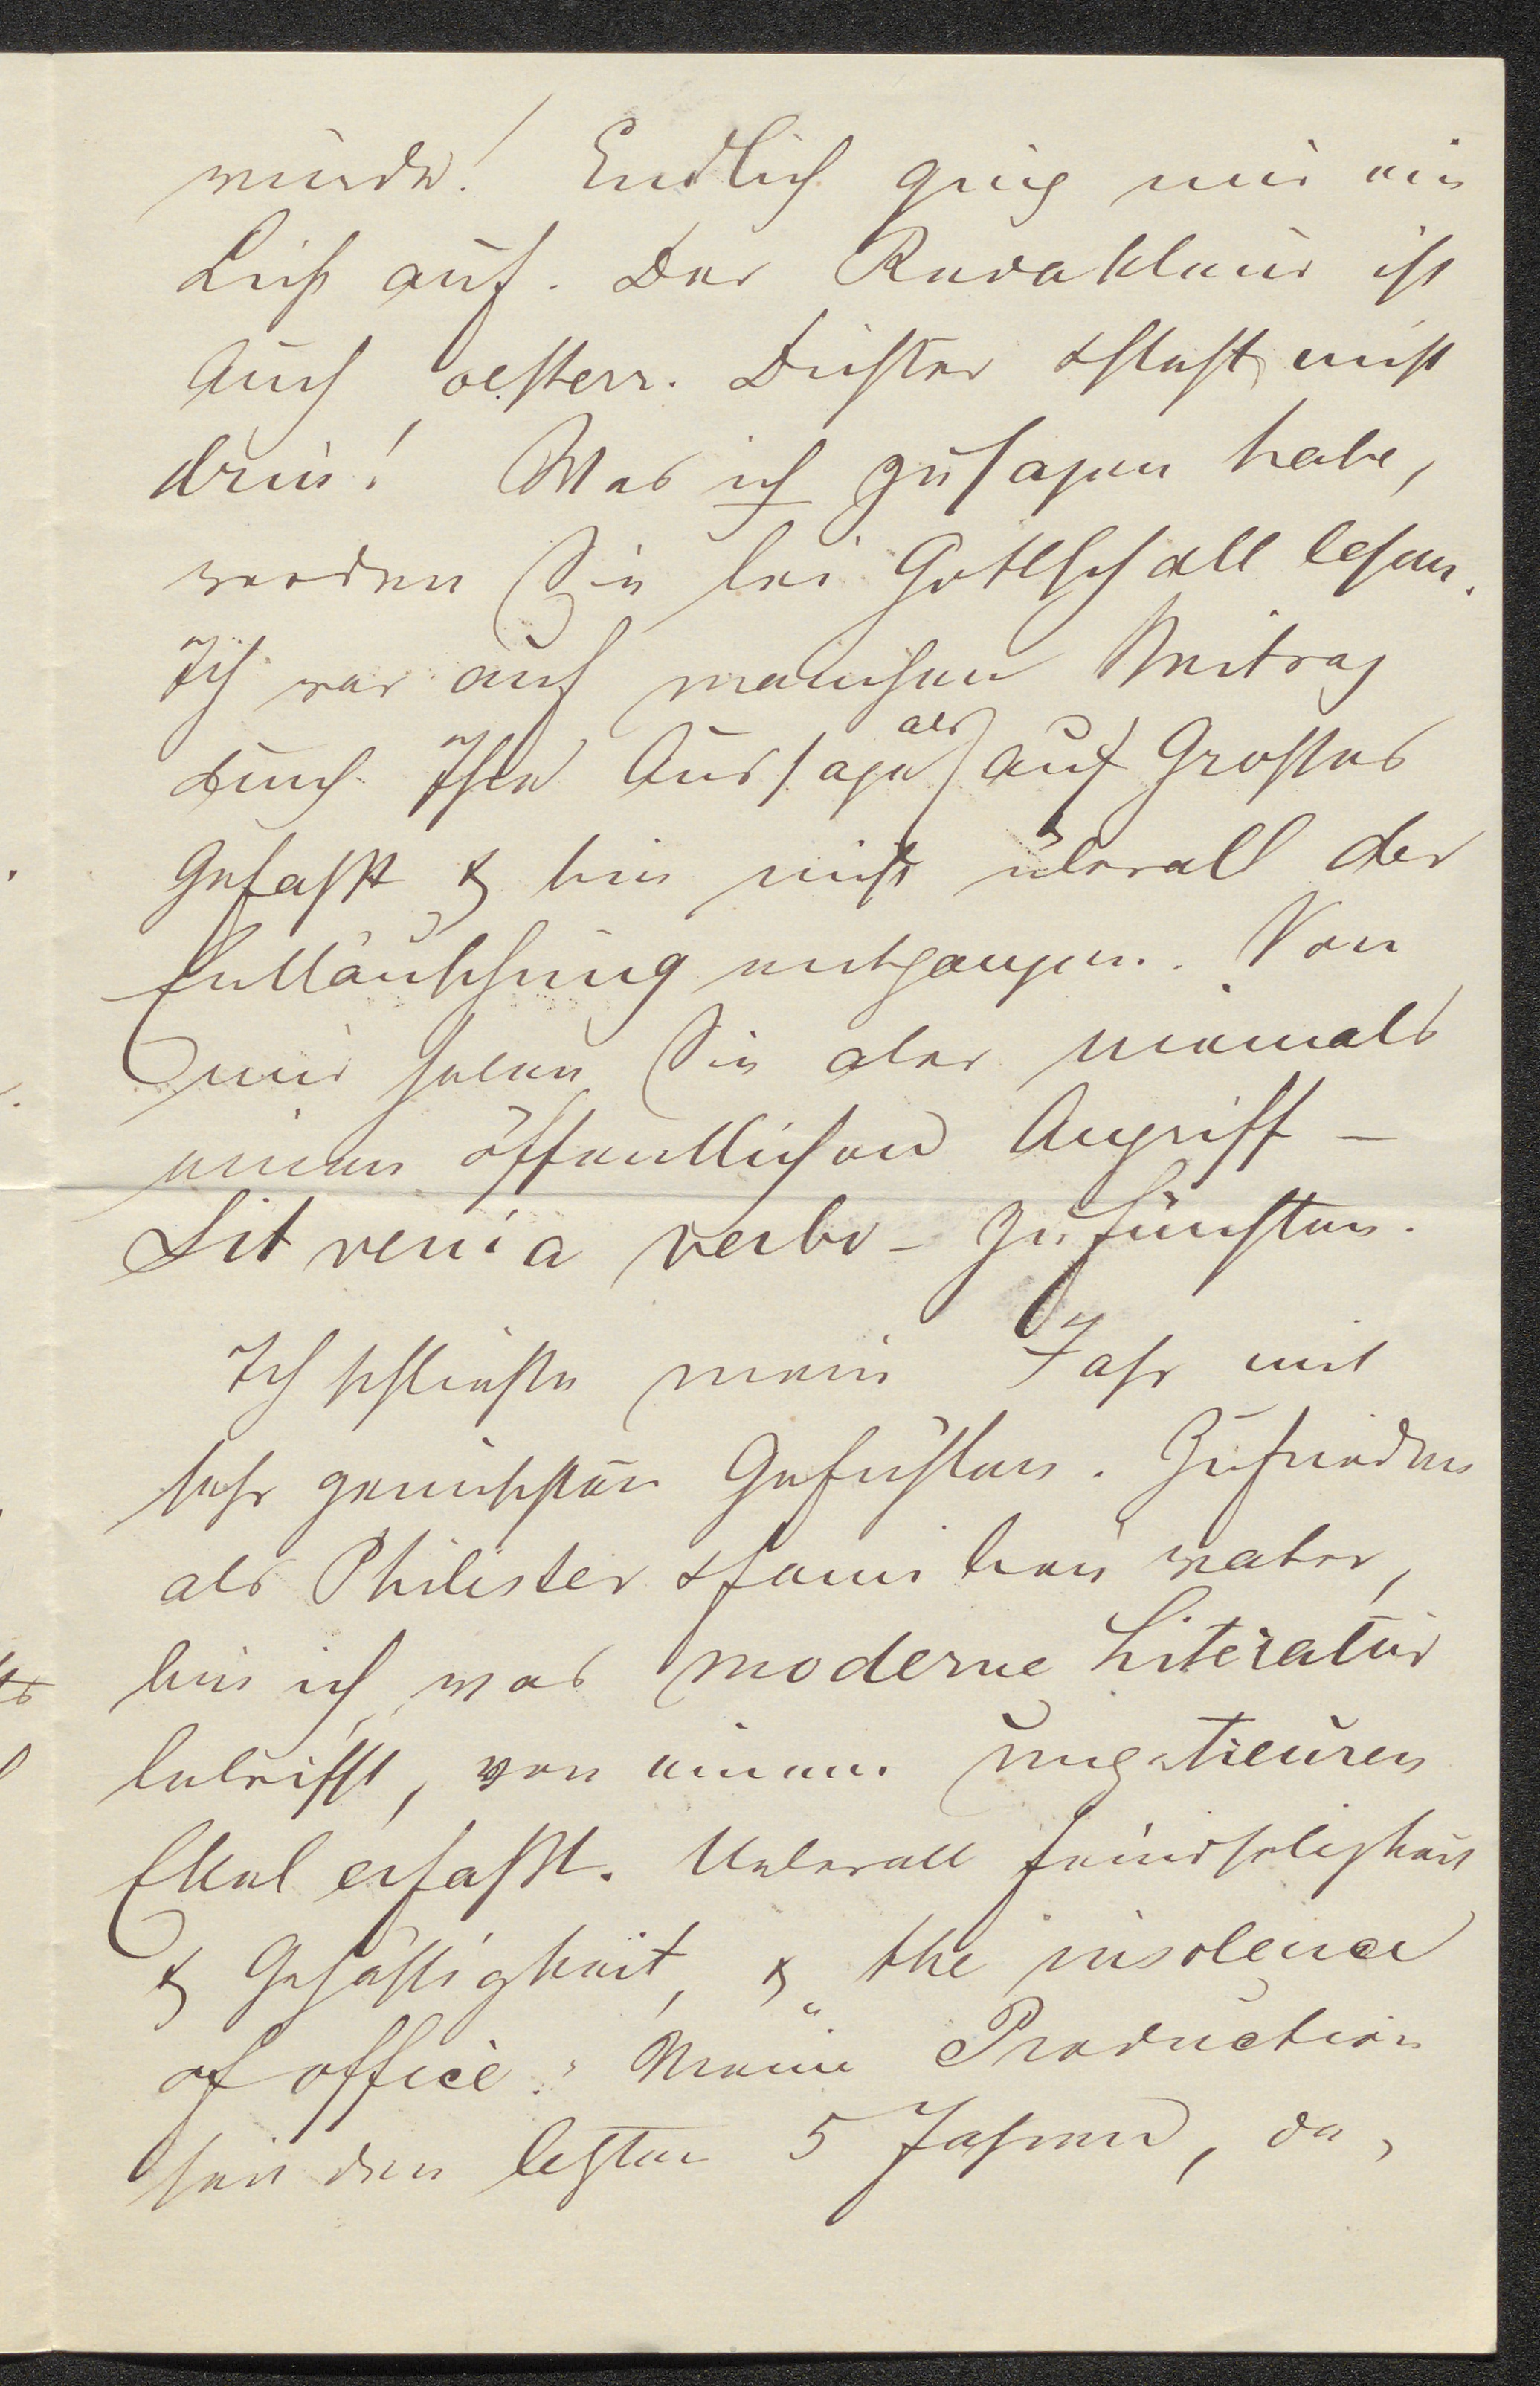 würde! Endlich ging mir ein
Licht auf. Der Redakteur ist
auch oesterr. Dichter & steht nicht
drin! Was ich zu sagen habe,
werden Sie bei Gottschall lesen.
Ich war auf manchen Beitrag
durch Ihre Aussage als auf Großes
gefaßt & bin nicht überall der
Enttäuschung entgangen. Von
mir haben Sie aber niemals
einen öffentlichen Angriff –
Sit venia verbo – zu fürchten.
Ich schließe mein Jahr mit
sehr gemischten Gefühlen. Zufrieden
als Philister & Familienvater,
bin ich, was moderne Literatur
betrifft, von einem ungeheuren
Ekel erfaßt. Ueberall Feindseligkeit
& Gehässigkeit, & „the insolence
of office." Meine Production
seit den letzten 5 Jahren, da,